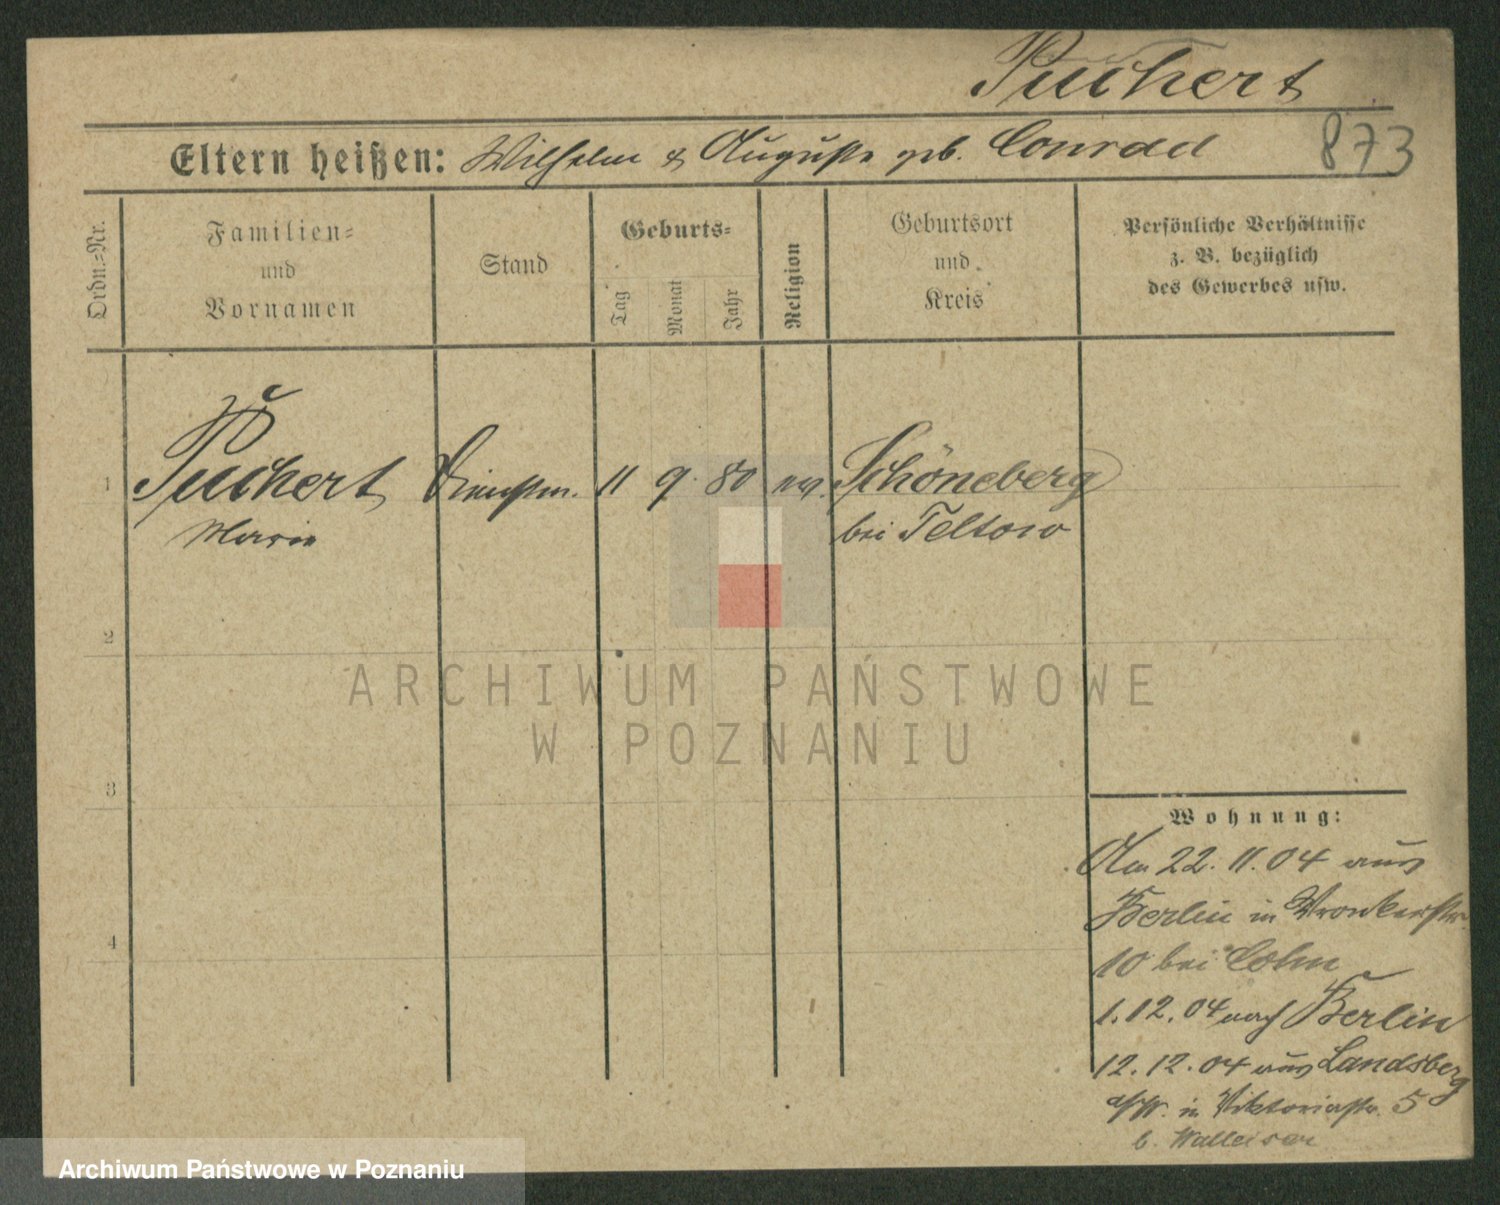 Puchert
Eltern heißen: Wilhelm & Auguste geb. Conrad
873
Ordn.=Nr.
Familien=
und
Vornamen
Stand
Geburts=
Tag
Monat
Jahr
Religion
Geburtsort
und
Kreis
Persönliche Verhältnisse
z. B. bezüglich
des Gewerbes usw.
1 Puchert Dienstm. 11 9. 80 ev. Schöneberg
Marie bei Teltow
2
3
4
Wohnung:
Am 22. 11. 04 aus
Berlin in Wronkerstr.
10 bei Cohn
1. 12. 04 nach Berlin
12. 12. 04 aus Landsberg
a/W. in Viktoriastr. 5
b.
ARCHIWUM PAŃSTWOWE
W POZNANIU
Archiwum Państwowe w Poznaniu